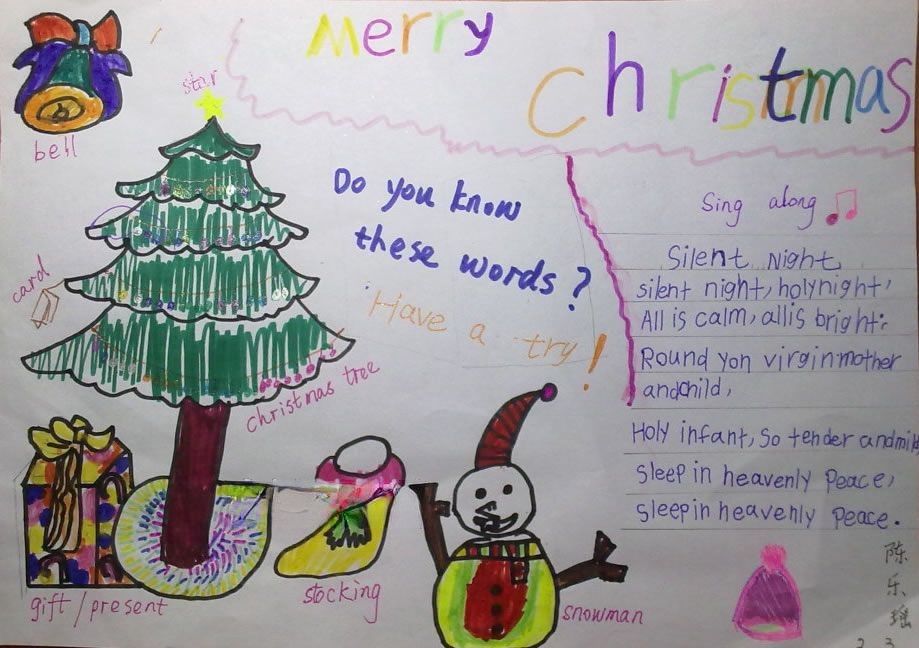 Merry
Christmas
bell
star
card
christmas tree
gift / present
stocking
snowman
Do you know
these words?
Have a try!
Sing along
Silent Night
silent night, holy night,
All is calm, all is bright:
Round yon virgin mother
and child,
Holy infant, So tender and mild
Sleep in heavenly Peace,
Sleep in heavenly Peace.
陈
乐
瑶
2 3